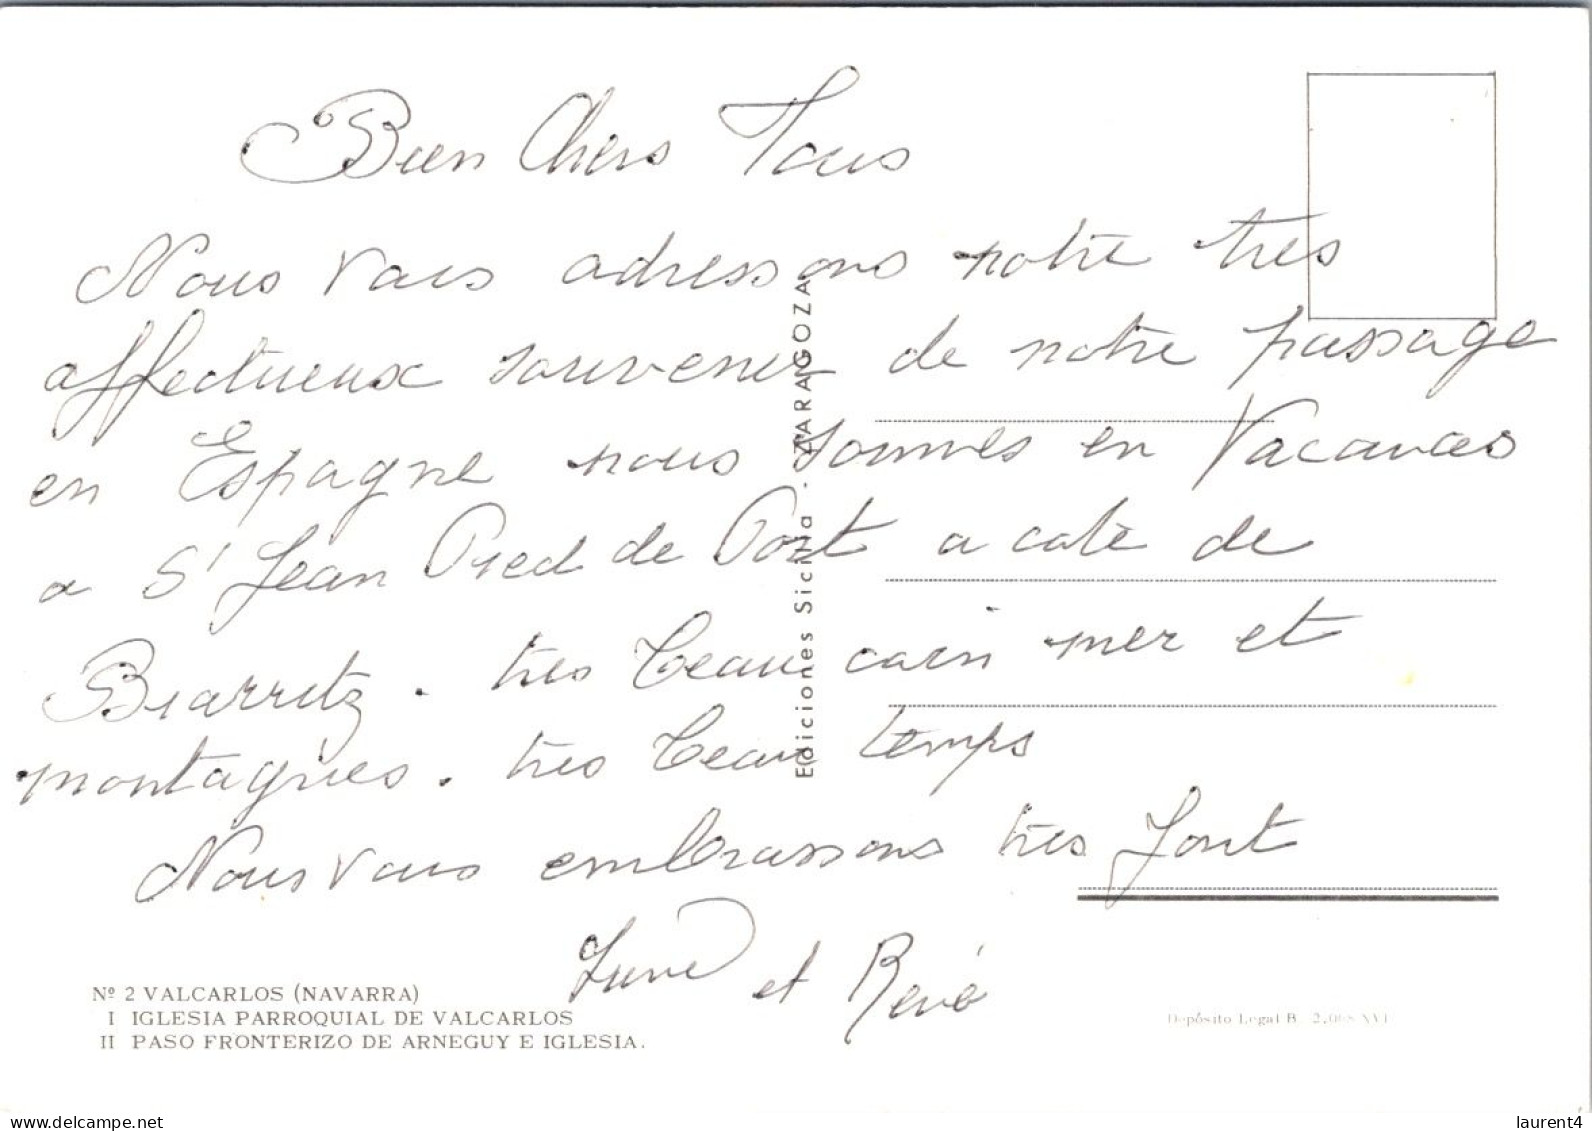 Bien Chers Tous
Nous vous adressons notre très
affectueux souvenir de notre passage
en Espagne nous sommes en Vacances
a St Jean Pied de Port a coté de
Biarritz. très beau coin mer et
montagnes. très beau temps
Nous vous embrassons très fort
et René
Ediciones Sicilia - ZARAGOZA
Nº 2 VALCARLOS (NAVARRA)
I IGLESIA PARROQUIAL DE VALCARLOS
II PASO FRONTERIZO DE ARNEGUY E IGLESIA.
Depósito Legal B.
www.delcampe.net
laurent4